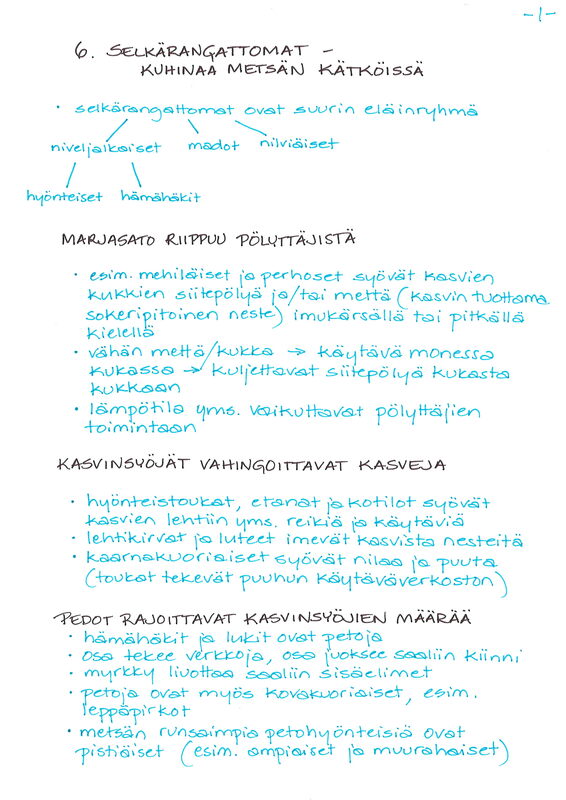 -1-
6. SELKÄRANGATTOMAT -
KUHINAA METSÄN KÄTKÖISSÄ
• selkärangattomat ovat suurin eläinryhmä
niveljalkaiset madot nilviäiset
hyönteiset hämähäkit
MARJASATO RIIPPUU PÖLYTTÄJISTÄ
• esim. mehiläiset ja perhoset syövät kasvien
kukkien siitepölyä ja/tai mettä (kasvin tuottama
sokeripitoinen neste) imukärsällä tai pitkällä
kielellä
• vähän mettä/kukka → käytävä monessa
kukassa → kuljettavat siitepölyä kukasta
kukkaan
• lämpötila yms. vaikuttavat pölyttäjien
toimintaan
KASVINSYÖJÄT VAHINGOITTAVAT KASVEJA
• hyönteistoukat, etanat ja kotilot syövät
kasvien lehtiin yms. reikiä ja käytäviä
• lehtikirvat ja luteet imevät kasvista nesteitä
• kaarnakuoriaiset syövät nilaa ja puuta
(toukat tekevät puuhun käytäväverkoston)
PEDOT RAJOITTAVAT KASVINSYÖJIEN MÄÄRÄÄ
• hämähäkit ja lukit ovat petoja
• osa tekee verkkoja, osa juoksee saaliin kiinni
• myrkky liuottaa saaliin sisäelimet
• petoja ovat myös kovakuoriaiset, esim.
leppäpirkot
• metsän runsaimpia petohyönteisiä ovat
pistiäiset (esim. ampiaiset ja muurahaiset)